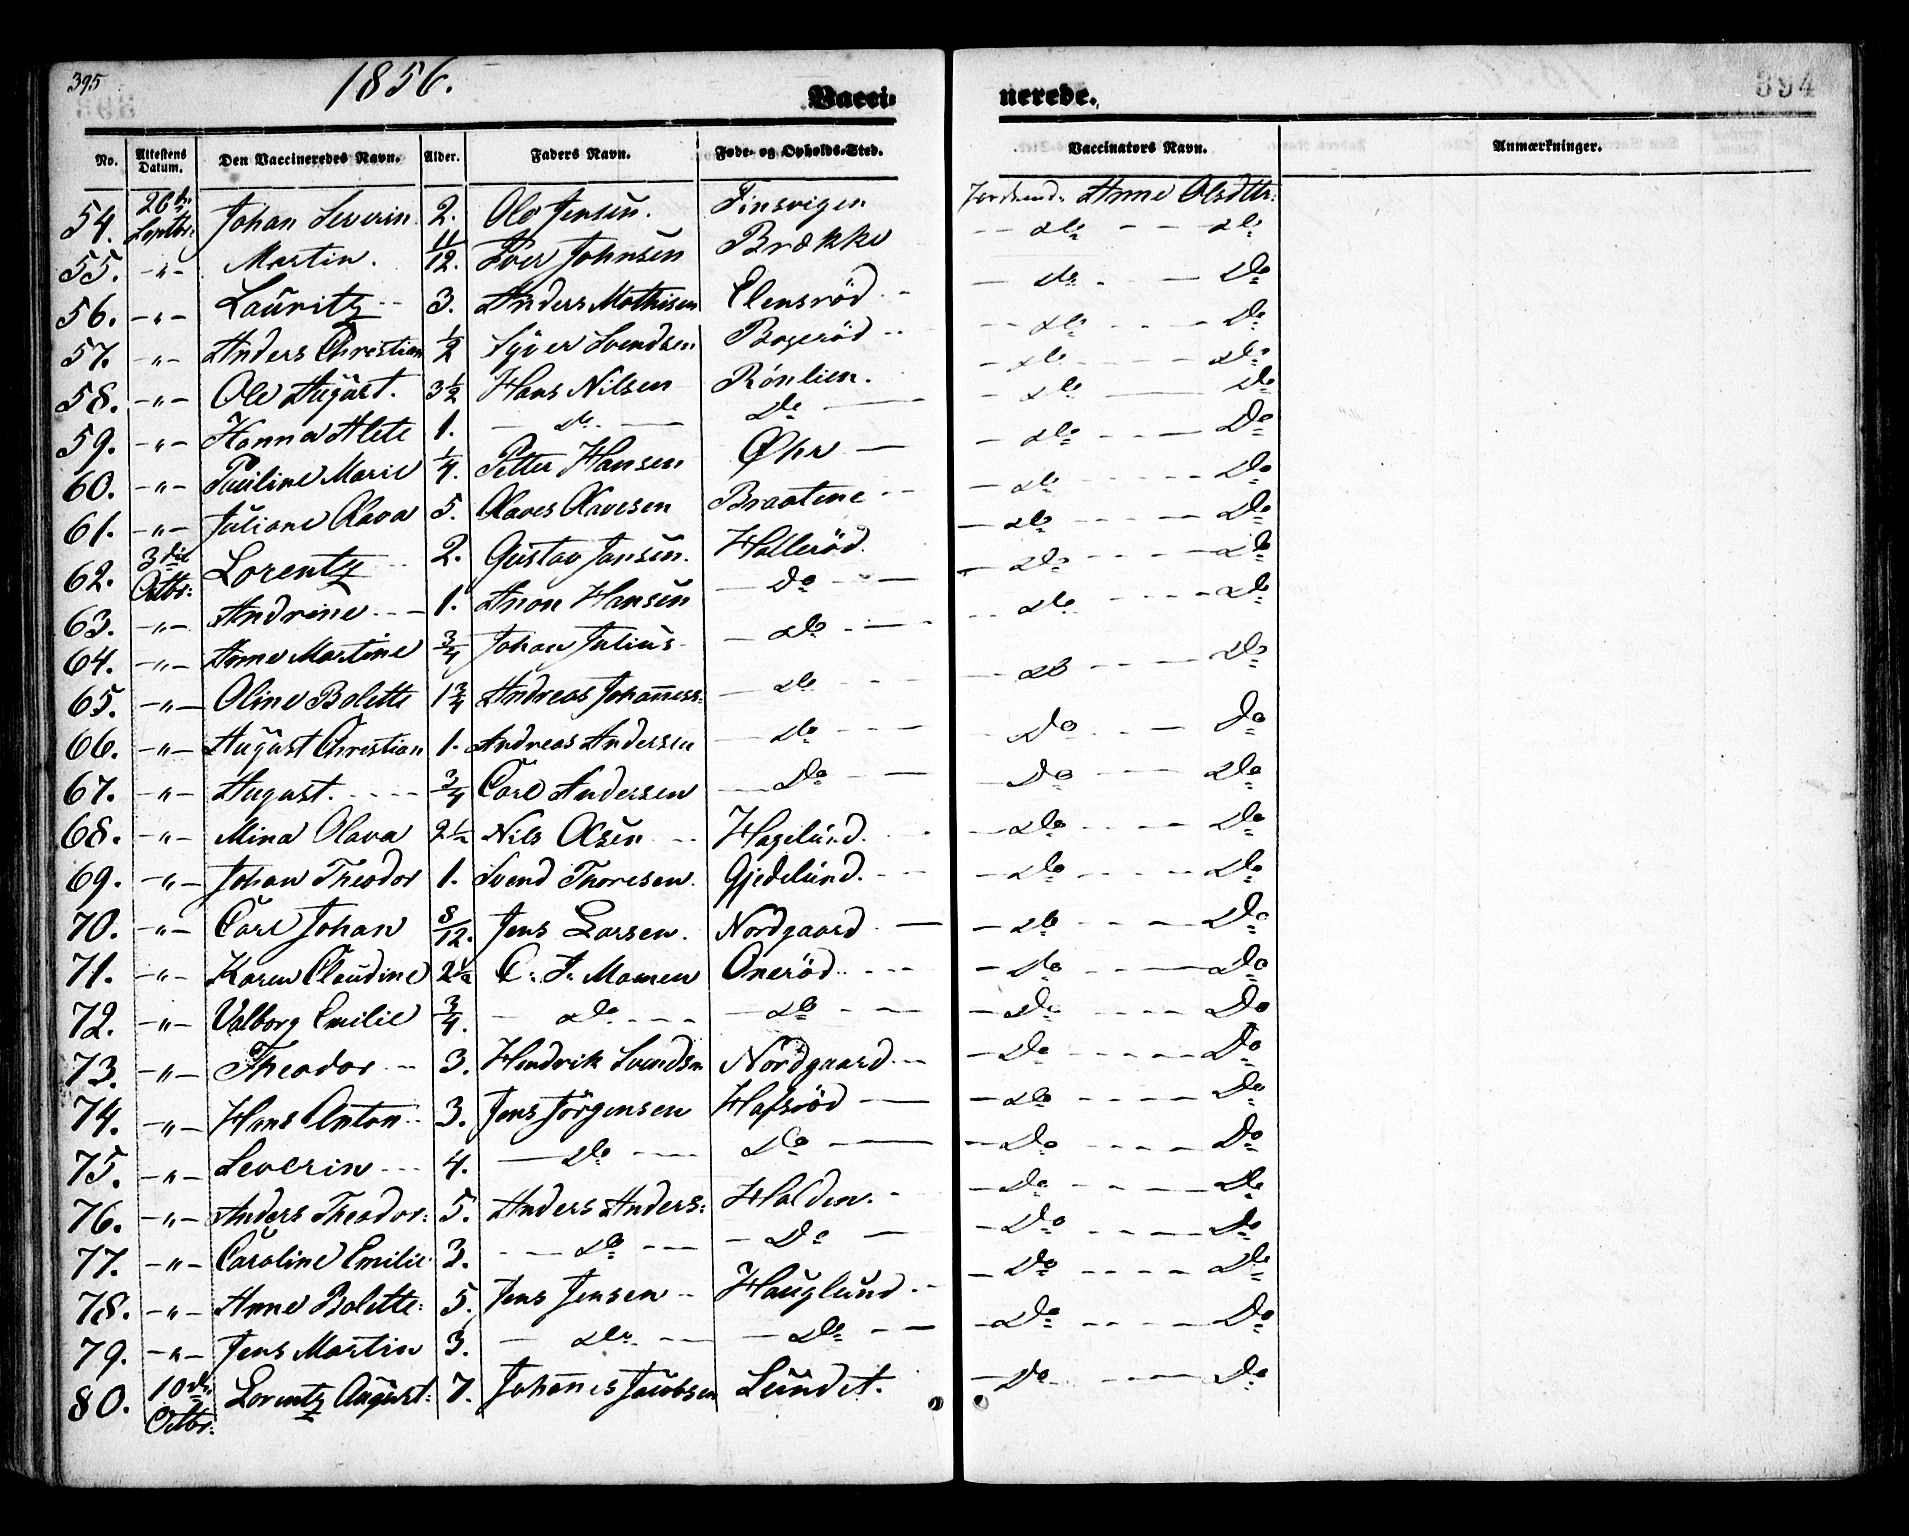 395 1856. 394
Vacci- nerede.
No. Attestens Datum. Den Vaccineredes Navn. Alder. Faders Navn. Føde- og Opholds-Sted. Vaccinators Navn. Anmærkninger.
54. 26de Septbr: Johan Severin 2. Ole Jensen. Finsvigen Jordmd. Anne Olsdtr:
55. -"- Martin. 11/12. Iver Johnsen Brække do do
56. -"- Lauritz 3. Anders Mathisen Elensrød do Do
57. -"- Anders Christian 1/2 Syver Svendsen Bogerød do Do
58. -"- Ole August. 3 1/2 Hans Nilsen Rönlien. do do
59. -"- Hanna Alete 1. do Do do Do
60. -"- Pauline Marie 1/4. Petter Hansen Øhr do Do
61. -"- Juliane Olava 5. Olaves Olavesen Braatene do Do
62. 3die Octbr: Lorentz 2. Gustav Jansen. Hallerød. do Do
63. -"- Andrine 1. Anon Hansen Do do do
64. -"- Anne Martine 3/4 Johan Julius do do do
65. -"- Oline Bolette 1 3/4 Andreas Johanness: do do do
66. -"- August Christian 1. Andreas Andersen do Do Do
67. -"- August. 3/4 Carl Andersen Do Do do
68. -"- Mina Olava 2 1/2 Nils Olsen Hagelund. do Do
69. -"- Johan Theodor 1. Svend Thoresen. Gjedelund. do do
70. -"- Carl Johan 8/12. Jens Larsen. Nordgaard do Do
71. -"- Karen Claudine 2 1/2 C: J: Mamen Onerød do Do
72. -"- Valborg Emilie 3/4. do do Do Do
73. -"- Theodor 3. Hendrik Svendsen Nordgaard Do Do
74. -"- Hans Anton 3. Jens Jörgensen Hafsröd do Do
75. -"- Severin 4. do do Do Do
76. -"- Anders Theodor: 5. Anders Anders: Holden. Do do
77. -"- Caroline Emilie 3. do Do Do Do
78. -"- Anne Bolette: 5. Jens Jensen Hauglund Do do
79. -"- Jens Martin 3. do do Do Do
80. 10de Octbr: Lorentz August: 7. Johannes Jacobsen Lundet. Do Do